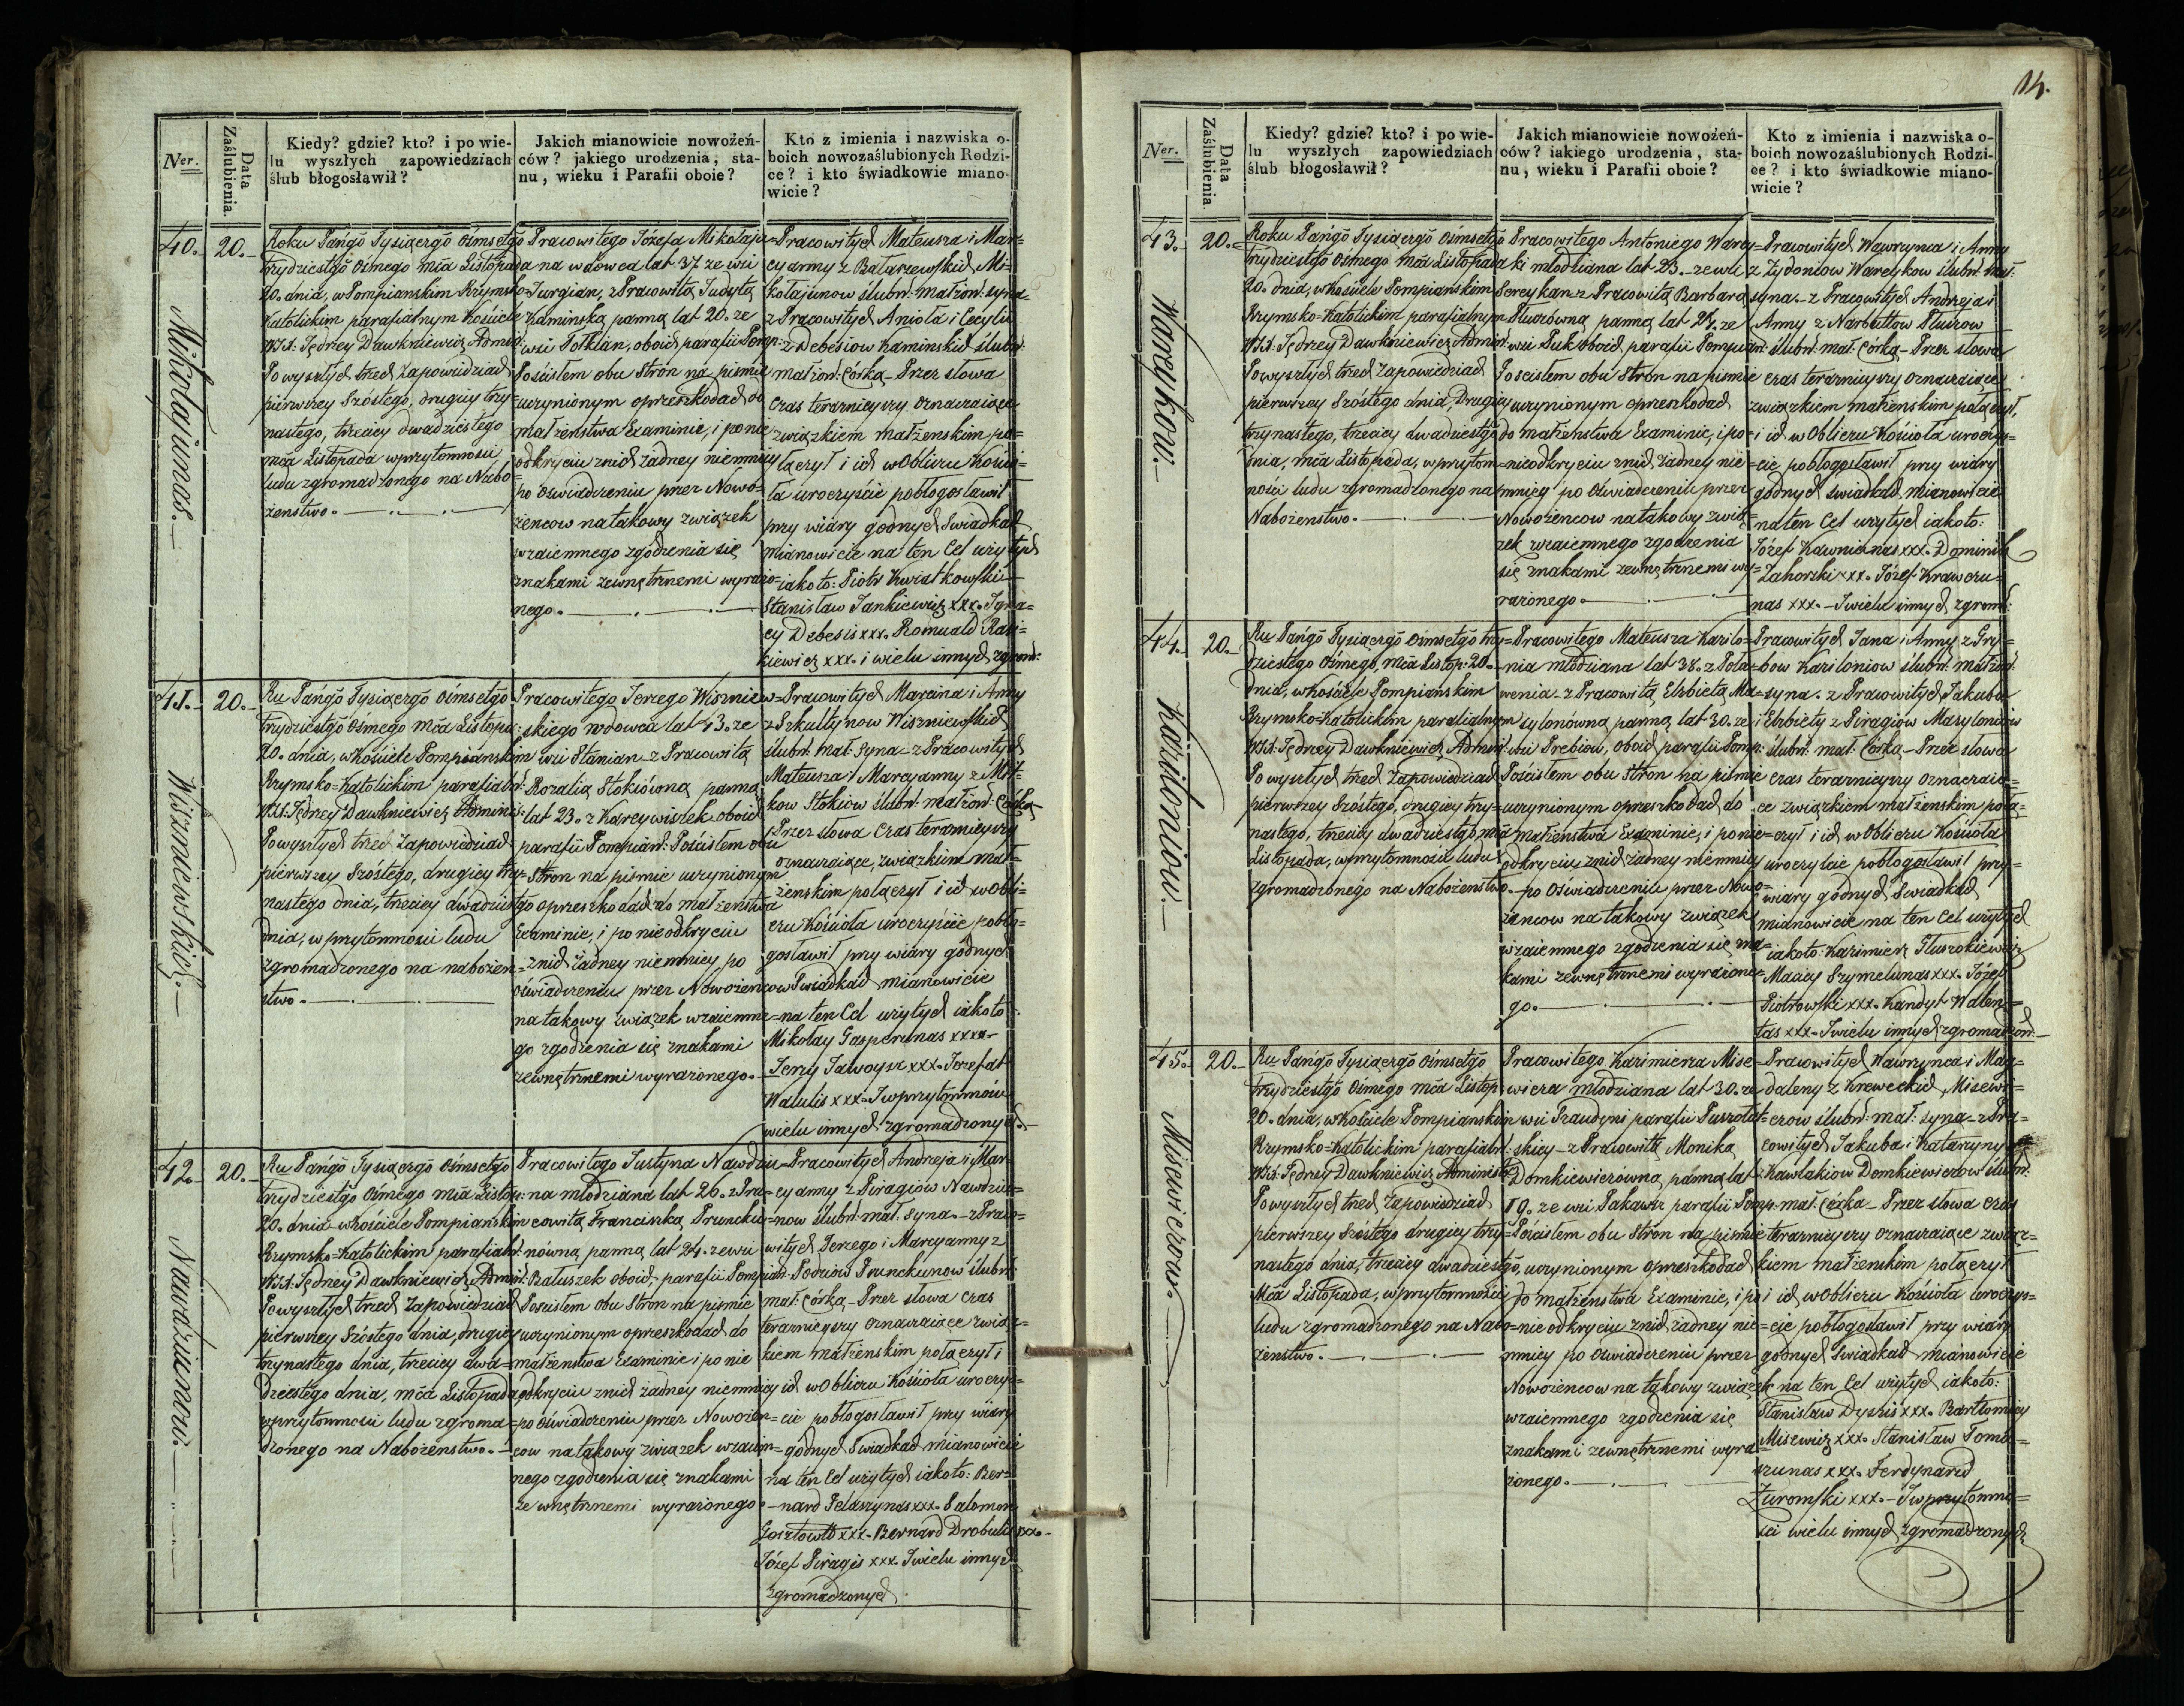 Ner.
Data Zaślubienia.
Kiedy? gdzie? kto? i po wie-
lu wyszłych zapowiedziach
ślub błogosławił?
Jakich mianowicie nowożeń-
ców? jakiego urodzenia, sta-
nu, wieku i Parafii oboie?
Kto z imienia i nazwiska o-
boich nowozaślubionych Rodzi-
ce? i kto świadkowie miano-
wicie?
40.
20.
Mikołajunas.
Roku Pańgo Tysiącgo Ośmsetgo
trydziestgo Ośmego mca Listopada
20. dnia, w Pompianskim Rzymsko-
Katolickim parafialnym Kościele
WJX: Jędrzey Dawkniewicz Admin:
Po wyszłych trzech Zapowiedziach
pierwszey Szóstego, drugiey trzy-
nastego, trzeciey dwadziestego
mca Listopada w przytomności
ludu zgromadzonego na Nabo-
żenstwo.
Pracowitego Józefa Mikołaju-
na wdowca lat 37. ze wsi
Jurgian, z Pracowitą Judytą
Kaminską panną lat 20. ze
wsi Potklan, oboich parafii Pomp:
Po ścisłem obu Stron na piśmie
uczynionym o przeszkodach do
małżenstwa Examinie, i po nie
odkryciu z nich żadney niemniey
po oświadczeniu przez Nowo-
żencow na takowy związek
wzaiemnego zgodzenia się
znakami zewnętrznemi wyrażo-
nego.
Pracowitych Mateusza i Mar-
cyanny z Bataszewskich Mi-
kołajunow ślubn: małżon: syna-
z Pracowitych Anioła i Cecylii
z Debesiow Kaminskich ślubn:
małżon: Córką - Przez słowa
czas teraznieyszy oznaczaiące
związkiem małżenskim po-
łączył i ich w Obliczu Kościo-
ła uroczyście pobłogosławił
przy wiary godnych Swiadkach
mianowicie na ten Cel użytych
iako to: Piotr Kwiatkowski
Stanisław Jankiewicz xxx. Igna-
cy Debesis xxx. Romuald
xxx. i wielu innych zgrom:
41.
20.
Wiszniewskich.
Ru Pańgo Tysiącgo Ośmsetgo
trydziestgo Osmego mca Listopa:
20. dnia, w Kościele Pompianskim
Rzymsko-Katolickim parafialn:
WJX: Jędrzey Dawkniewicz Adminis:
Po wyszłych trzech Zapowiedziach
pierwszey Szóstego, drugiey trzy-
nastego dnia, trzeciey dwadziestgo
dnia, w przytomności ludu
zgromadzonego na nabożen-
stwo.
Pracowitego Jerzego Wiszniew-
skiego wdowca lat 43. ze
wsi Stanian - z Pracowitą
Rozalią Stokiówną panną
lat 23. z Karcywiszek oboich
parafii Pompiań: Po ścisłem obu
Stron na piśmie uczynionym
o przeszkodach do małżenstwa
Examinie, i po nieodkryciu
z nich żadney niemniey po
oświadczeniu przez Nowożencow
na takowy związek wzaiemne-
go zgodzenia się znakami
zewnętrznemi wyrażonego.
Pracowitych Marcina i Anny
z Szkultynow Wiszniewskich
ślubn: mał: Syna - z Pracowitych
Mateusza i Marcyanny z
Stokiow ślubn: małżon: Córką
Przez słowa czas teraznieyszy
oznaczaiące, związkiem mał-
żenskim połączył i ich w Obli-
czu Kościoła uroczyście pobło-
gosławił przy wiary godnych
Swiadkach mianowicie
na ten Cel użytych iako to
Mikołay Gasperunas xxx.
Jerzy Jawoysz xxx. Jozefat
Walulis xxx. I w przytomnow
wielu innych zgromadzonych.
42.
20.
Nawdziunow.
Ru Pańgo Tysiącgo Ośmsetgo
trydziestgo Osmego mca Listop:
20. dnia w kościele Pompianskim
Rzymsko-Katolickim parafialn:
WJX: Jędrzey Dawkniewicz Admin:
Po wyszłych trzech Zapowiedziach
pierwszey Szóstego dnia, drugiey
trzynastego dnia, trzeciey dwa-
dziestego dnia, mca Listopada
w przytomności ludu zgroma-
dzonego na Nabożenstwo.
Pracowitego Justyna Nawdziu-
na młodziana lat 26. z Pra-
cowitą Franciszką Pruncku-
nówną panną lat 24. ze wsi
Batuszek oboich parafii Pompiań:
Po ścisłem obu Stron na pismie
uczynionym o przeszkodach do
małżenstwa Examinie i po nie
odkryciu z nich żadney niemniey
po oświadczeniu przez Nowożen-
cow na takowy związek wzaiem-
nego zgodzenia się znakami
zewnętrznemi wyrażonego
Pracowitych Andrzeja i Mar-
cyanny z Piragiow Nawdziu-
now ślubn: mał: syna. - z Praco-
witych Jerzego i Marcyanny z
Podziow Prunckunow ślubn:
mał: Córką - Przez słowa czas
teraznieyszy oznaczaiące związ-
kiem małżenskim połączył i
ich w Obliczu Kościoła uroczyś-
cie pobłogosławił przy wiary
godnych Swiadkach mianowicie
na ten Cel użytych iako to: Ber-
nard Pelaszynas xxx. Salomon
Gosztowtt xxx. Bernard Drobulis xxx.
Józef Piragis xxx. I wielu innych
zgromadzonych
14.
Ner.
Data Zaślubienia.
Kiedy? gdzie? kto? i po wie-
lu wyszłych zapowiedziach
ślub błogosławił?
Jakich mianowicie nowożeń-
ców? iakiego urodzenia, sta-
nu, wieku i Parafii oboie?
Kto z imienia i nazwiska o-
boich nowozaślubionych Rodzi-
ce? i kto świadkowie miano-
wicie?
43.
20.
Wareykow.
Roku Pańgo Tysiącgo Ośmsetgo
trydziestgo Ośmego mca Listopada
20. dnia, w kościele Pompianskim
Rzymsko-Katolickim parafialnym
WJX: Jędrzey Dawkniewicz Admin:
Po wyszłych trzech Zapowiedziach
pierwszey Szóstego dnia, Drugiey
trzynastego, trzeciey dwadziestgo
dnia, mca Listopada, w przytom-
ności ludu zgromadzonego na
Nabożenstwo.
Pracowitego Antoniego Warey-
ki młodziana lat 23. - ze wsi
Sereykan z Pracowitą Barbarą
Pluszówną panną lat 25. ze
wsi Puk oboich parafii Pompiań:
Po scisłem obu Stron na pismie
uczynionym o przeszkodach
do małżenstwa Examinie, i po-
nieodkryciu z nich żadney nie-
mniey po Oświadczeniu przez
Nowożencow na takowy zwią-
zek wzaiemnego zgodzenia
się znakami zewnętrznemi wy-
rażonego.
Pracowitych Wawrzynca i Anny
z Żydoniow Wareykow ślubn: mał:
syna. - z Pracowitych Andrzeja i
Anny z Narbuttow Pluszow
ślubn: mał: Córką - Przez słowa
czas teraznieyszy oznaczaiące
związkiem małżenskim połączył,
i ich w Obliczu Kościoła uroczyś-
cie pobłogosławił przy wiary
godnych swiadkach mianowicie
na ten Cel użytych iako to:
Józef Kawnienas xxx. Dominik
Zahorski xxx. Józef Krawczu-
nas xxx. - I wielu innych zgrom:
44.
20.
Kaziloniow.
Ru Pańgo Tysiącgo Ośmsetgo try-
dziestego Ośmego, mca Listop: 20.
dnia, w kościele Pompianskim
Rzymsko-Katolickim parafialnym
WJX: Jędrzey Dawkniewicz Admin:
Po wyszłych trzech Zapowiedziach
pierwszey Szóstego, drugiey trzy-
nastego, trzeciey dwadziestgo mca
Listopada, w przytomności ludu
zgromadzonego na Nabożenstwo.
Pracowitego Mateusza Kazilo-
nia młodziana lat 38. z Pola-
wenia - z Pracowitą Elżbietą Ma-
sylonówną panną lat 30. ze
wsi Prebiow, oboich parafii Pomp:
Po ścisłem obu Stron na pismie
uczynionym o przeszkodach do
małżenstwa Examinie, i po nie-
odkryciu z nich żadney niemniey
po Oświadczeniu przez Nowo-
żencow na takowy związek
wzaiemnego zgodzenia się zna-
kami zewnętrznemi wyrażone-
go.
Pracowitych Jana i Anny z Gry-
bow Kaziloniow ślubn: małżon:
syna. z Pracowitych Jakuba
i Elżbiety z Piragiow Masyloniow
ślubn: mał: Córką - Przez słowa
czas teraznieyszy oznaczaią-
ce związkiem małżenskim połą-
czył i ich w Obliczu Kościoła
uroczyście pobłogosławił przy
wiary godnych Swiadkach
mianowicie na ten Cel użytych
iako to: Kazimierz Gluszokiewicz
Maciey Szymelunas xxx. Józef
Piotrowski xxx. Kandyt Walen-
tas xxx. I wielu innych zgromadzon:
45.
20.
Misewiczow.
Ru Pańgo Tysiącgo Ośmsetgo
trydziestgo Osmego mca Listop:
20. dnia, w Kościele Pompianskim
Rzymsko-Katolickim parafialn:
WJX: Jędrzey Dawkniewicz Administr:
Po wyszłych trzech Zapowiedziach
pierwszey Szóstego drugiey trzy-
nastego dnia, trzeciey dwadziestgo,
mca Listopada, w przytomności
ludu zgromadzonego na Nabo-
żenstwo.
Pracowitego Kazimierza Mise-
wicza młodziana lat 30. ze
wsi Traudyni parafii Puszołat-
skiey - z Pracowitą Moniką
Domkiewiczówną panną lat
19. ze wsi Pakawsz parafii Pomp:
Po ścisłem obu Stron na pismie
uczynionym o przeszkodach
do małżenstwa Examinie, i po
nie odkryciu z nich żadney nie-
mniey po Oświadczeniu przez
Nowożencow na takowy związek
wzaiemnego zgodzenia się
znakami zewnętrznemi wyra-
żonego.
Pracowitych Wawrzynca i Mag-
daleny z Kreweckich Misewi-
czow ślubn: mał: syna - z Pra-
cowitych Jakuba i Katarzyny
z Kawlakiow Domkiewiczow ślubn:
mał: Córką - Przez słowa czas
teraznieyszy oznaczaiące związ-
kiem małżenskim połączył
i ich w Obliczu Kościoła uroczyś-
cie pobłogosławił przy wiary
godnych Swiadkach mianowicie
na ten Cel użytych iako to:
Stanisław Dyszis xxx. Bartłomiey
Misewicz xxx. Stanisław Toma-
szunas xxx. Ferdynand
Żuromski xxx. - I w przytomno-
ści wielu innych zgromadzonych.